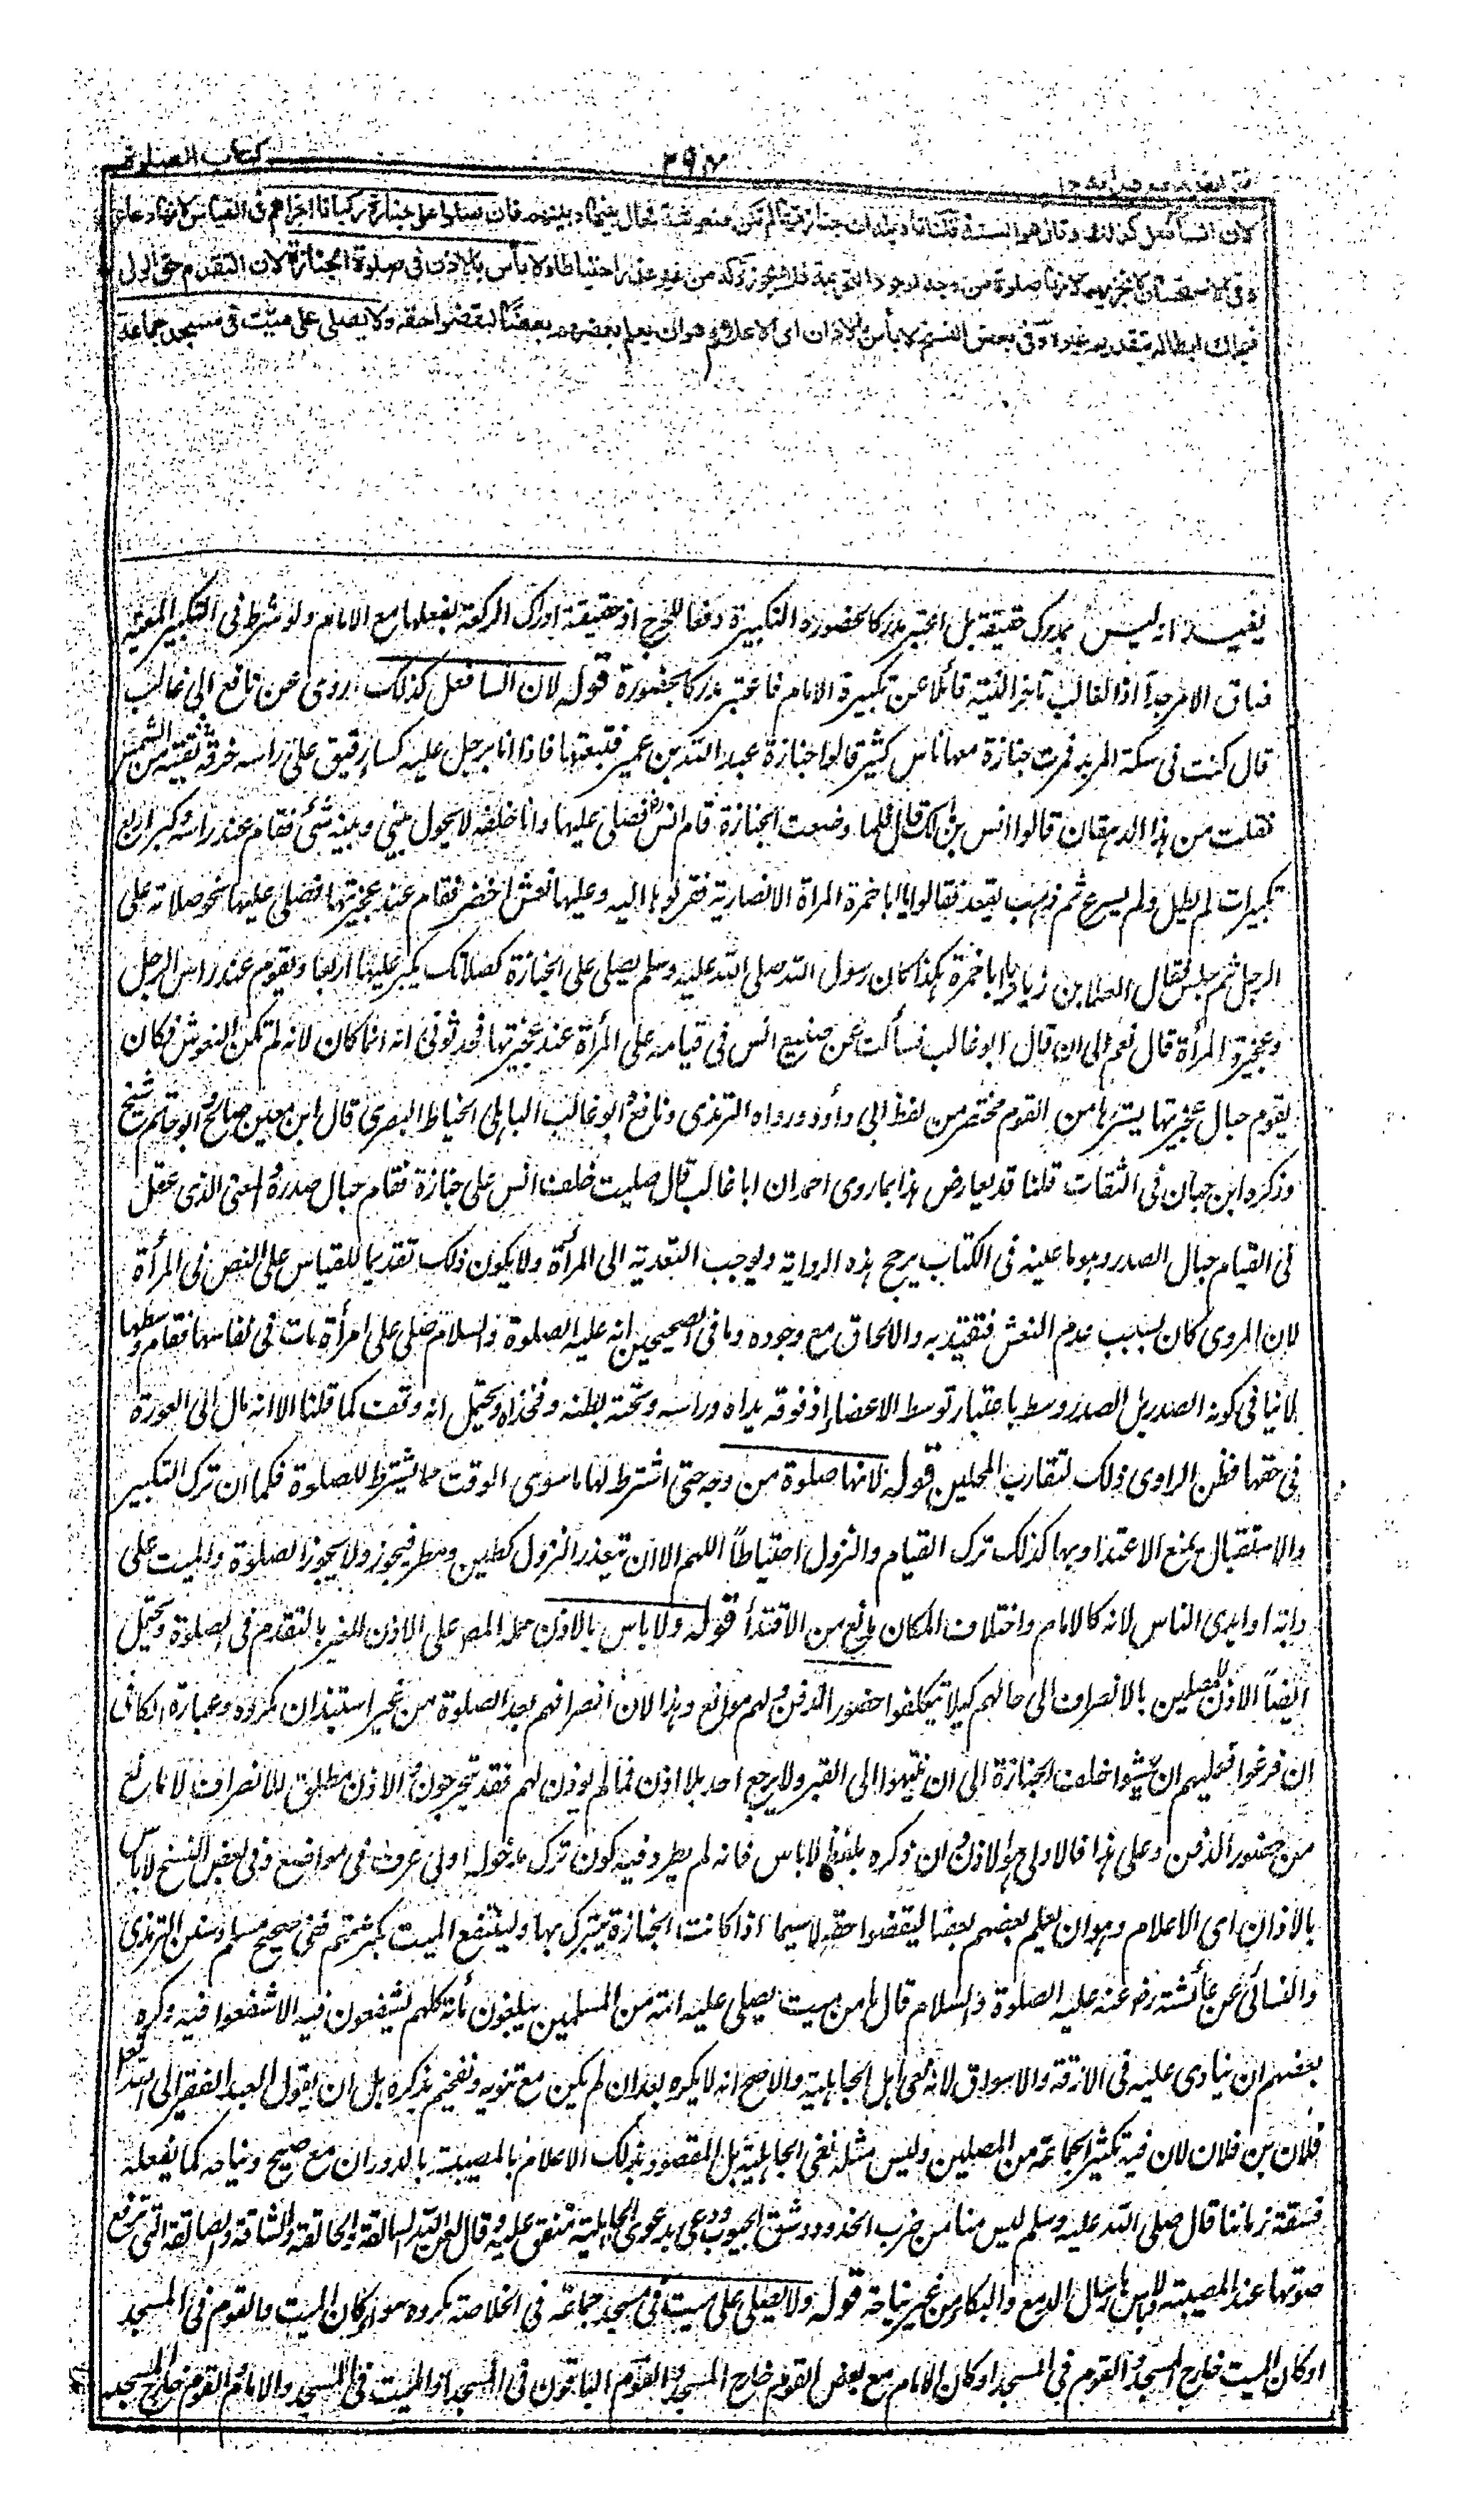 كتاب الصلوة
٢٩٧
لان انسا فعل كذلك وقال هو السنة قلنا تاويله ان جنازتها لم تكن منعوشة فحال بينها وبينهم فان صلوا على جنازة ركبانا اجزاهم في القياس لانها دعاء
وفي الاستحسان لا تجزيهم لانها صلوة من وجه لوجود التحريمة فلا يجوز تركه من غير عذر احتياطا ولا بأس بالاذن في صلوة الجنازة لان التقدم حق الولي
فيملك ابطاله بتقديم غيره وفي بعض النسخ لا بأس بالاذان اى الاعلام وهو ان يعلم بعضهم بعضا ليقضوا حقه ولا يصلى على ميت في مسجد جماعة
يفيد انه ليس بمدرك حقيقة بل اعتبر مدركا لحضوره التكبيرة دفعا للحرج اذ حقيقة ادراك الركعة بفعلها مع الامام ولو شرط فى التكبير المعية
ضاق الامر جدا اذ الغالب تاخر النية قليلا عن تكبيرة الامام فاعتبر مدركا بحضوره قوله لان انسا فعل كذلك روى عن نافع ابى غالب
قال كنت فى سكة المربد فمرت جنازة معها ناس كثير قالوا جنازة عبد الله بن عمير فتبعتها فاذا انا برجل عليه كساء رقيق على راسه خرقة تقيه من الشمس
فقلت من هذا الدهقان قالوا انس بن مالك قال فلما وضعت الجنازة قام انس فصلى عليها وانا خلفه لا يحول بينى وبينه شئ فقام عند راسه وكبر اربع
تكبيرات لم يطل ولم يسرع ثم ذهب يقعد فقالوا يا ابا حمزة المراة الانصارية فقربوها اليه وعليها نعش اخضر فقام عند عجيزتها فصلى عليها نحو صلاته على
الرجل ثم جلس فقال العلاء بن زياد يا ابا حمزة هكذا كان رسول الله صلى الله عليه وسلم يصلى على الجنازة كصلاتك يكبر عليها اربعا ويقوم عند راس الرجل
وعجيزة المرأة قال نعم الى ان قال ابو غالب فسألت عن صنيع انس فى قيامه على المرأة عند عجيزتها فحدثونى انه انما كان لانه لم تكن النعوش فكان
يقوم حيال عجيزتها يسترها من القوم مختصر من لفظ ابى داؤد ورواه الترمذى ونافع هو ابو غالب الباهلى الخياط البصرى قال ابن معين صالح وابو حاتم شيخ
وذكره ابن حبان فى الثقات قلنا قد يعارض هذا بما روى احمد ان ابا غالب قال صليت خلف انس على جنازة فقام حيال صدره والمعنى الذى عقل
فى القيام حيال الصدر وهو ما عينه فى الكتاب يرجح هذه الرواية ويوجب التعدية الى المرأة ولا يكون ذلك تقديما للقياس على النص فى المرأة
لان المروى كان بسبب عدم النعش فتقيد به والالحاق مع وجوده وما فى الصحيحين انه عليه الصلوة والسلام صلى على امرأة ماتت فى نفاسها فقام وسطها
لا ينافى كونه الصدر بل الصدر وسط باعتبار توسط الاعضاء اذ فوقه يداه وراسه وتحته بطنه وفخذاه ويحتمل انه وقف كما قلنا الا انه مال الى العورة
فى حقها فظن الراوى ذلك لتقارب المحلين قوله لانها صلوة من وجه حتى اشترط لها ما سوى الوقت مما يشترط للصلوة فكما ان ترك التكبير
والاستقبال يمنع الاعتداد بها كذلك ترك القيام والنزول احتياطا اللهم الا ان يتعذر النزول كطين ومطر فيجوز ولا يجوز الصلوة والميت على
دابة او ايدى الناس لانه كالامام واختلاف المكان مانع من الاقتداء قوله ولا باس بالاذن حمله المص على الاذن للغير بالتقدم فى الصلوة ويحتمل
ايضا الاذن للمصلين بالانصراف الى حالهم كيلا يتكلفوا حضور الدفن ولهم موانع وهذا لان انصرافهم بعد الصلوة من غير استيذان مكروه وعبارة الكافى
ان فرغوا فعليهم ان يمشوا خلف الجنازة الى ان ينتهوا الى القبر ولا يرجع احد بلا اذن فما لم يوذن لهم فقد يتحرجون والاذن مطلق للانصراف لا مانع
من حضور الدفن وعلى هذا فالاولى هو الاذن وان ذكره بلفظ لا باس فانه لم يطرد فيه كون ترك مدخوله اولى عرف فى مواضع وفى بعض النسخ لا باس
بالاذان اى الاعلام وهو ان يعلم بعضهم بعضا ليقضوا حقه لا سيما اذا كانت الجنازة يتبرك بها ولينتفع الميت بكثرتهم ففى صحيح مسلم وسنن الترمذى
والنسائى عن عائشة رض عنه عليه الصلوة والسلام قال ما من ميت يصلى عليه امة من المسلمين يبلغون مأة كلهم يشفعون فيه الا شفعوا فيه وكره
بعضهم ان ينادى عليه فى الازقة والاسواق لانه نعى اهل الجاهلية والاصح انه لا يكره بعد ان لم يكن مع تنويه وتفخيم بذكره بل ان يقول العبد الفقير الى الله تعالى
فلان بن فلان لان فيه تكثير الجماعة من المصلين وليس مثله نعى الجاهلية بل المقصود بذلك الاعلام بالمصيبة بالدوران مع ضجيج ونياحه كما يفعله
فسقة زماننا قال صلى الله عليه وسلم ليس منا من ضرب الخدود وشق الجيوب ودعى بدعوى الجاهلية متفق عليه وقال لعن الله السالقة والحالقة والشاقة والصالقة التى ترفع
صوتها عند المصيبة ولا باس بارسال الدمع والبكاء من غير نياحة قوله ولا يصلى على ميت فى مسجد جماعة فى الخلاصة مكروه سواء كان الميت والقوم فى المسجد
او كان الميت خارج المسجد والقوم فى المسجد او كان الامام مع بعض القوم خارج المسجد والقوم الباقون فى المسجد او الميت فى المسجد والامام والقوم خارج المسجد